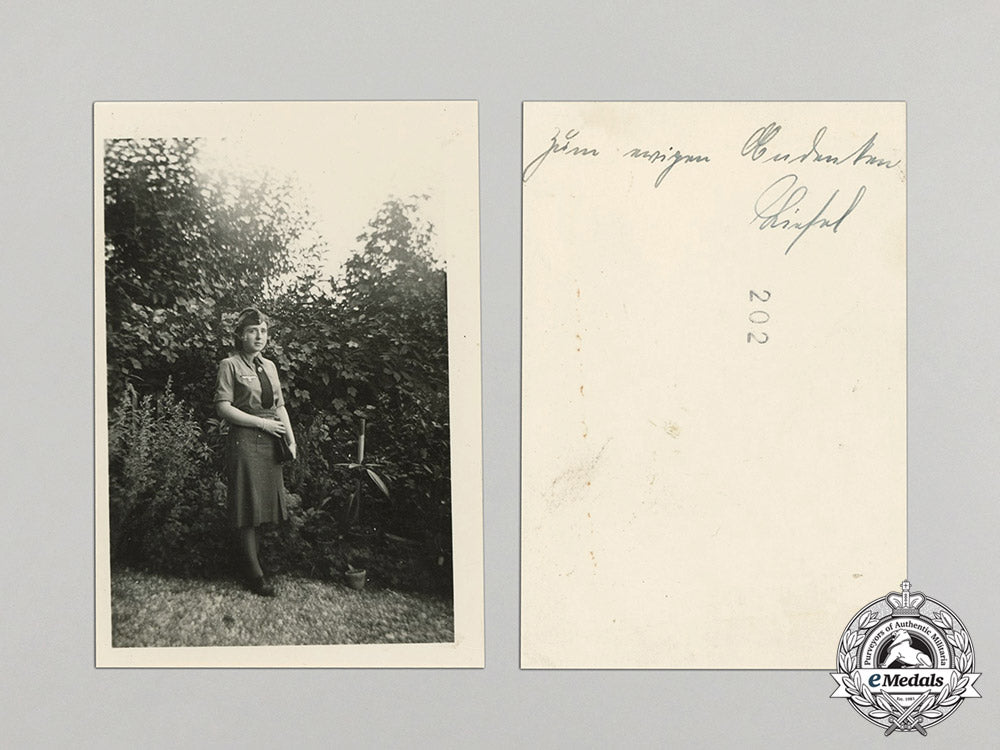 Zum ewigen Andenken
Liesel
202
Purveyors of Authentic Militaria
eMedals
Est. 1985